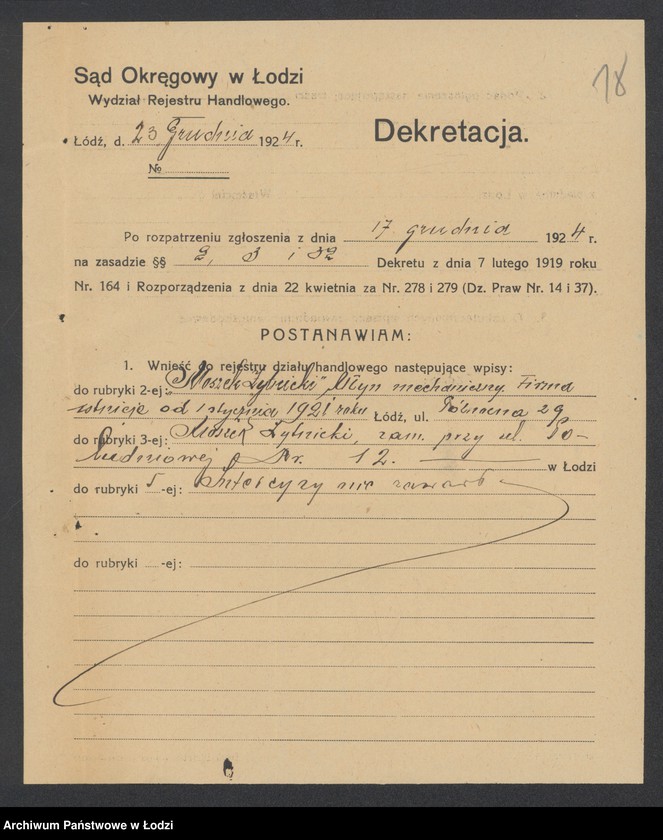 18
Sąd Okręgowy w Łodzi
Wydział Rejestru Handlowego.
Łódź, d. 23 Grudnia 1924 r.
Dekretacja.
№
Po rozpatrzeniu zgłoszenia z dnia 17 grudnia 1924 r.
na zasadzie §§ 2, 3 i 32 Dekretu z dnia 7 lutego 1919 roku
Nr. 164 i Rozporządzenia z dnia 22 kwietnia za Nr. 278 i 279 (Dz. Praw Nr. 14 i 37).
POSTANAWIAM:
1. Wnieść do rejestru działu handlowego następujące wpisy:
do rubryki 2-ej: „Moszek Żytnicki", Młyn mechaniczny Firma
istnieje od 1 stycznia 1921 roku Łódź, ul. Północna 29
do rubryki 3-ej: Moszek Żytnicki, zam. przy ul. Po-
łudniowej Nr. 12. w Łodzi
do rubryki 5-ej: Intercyzy nie zawarł
do rubryki -ej:
Archiwum Państwowe w Łodzi